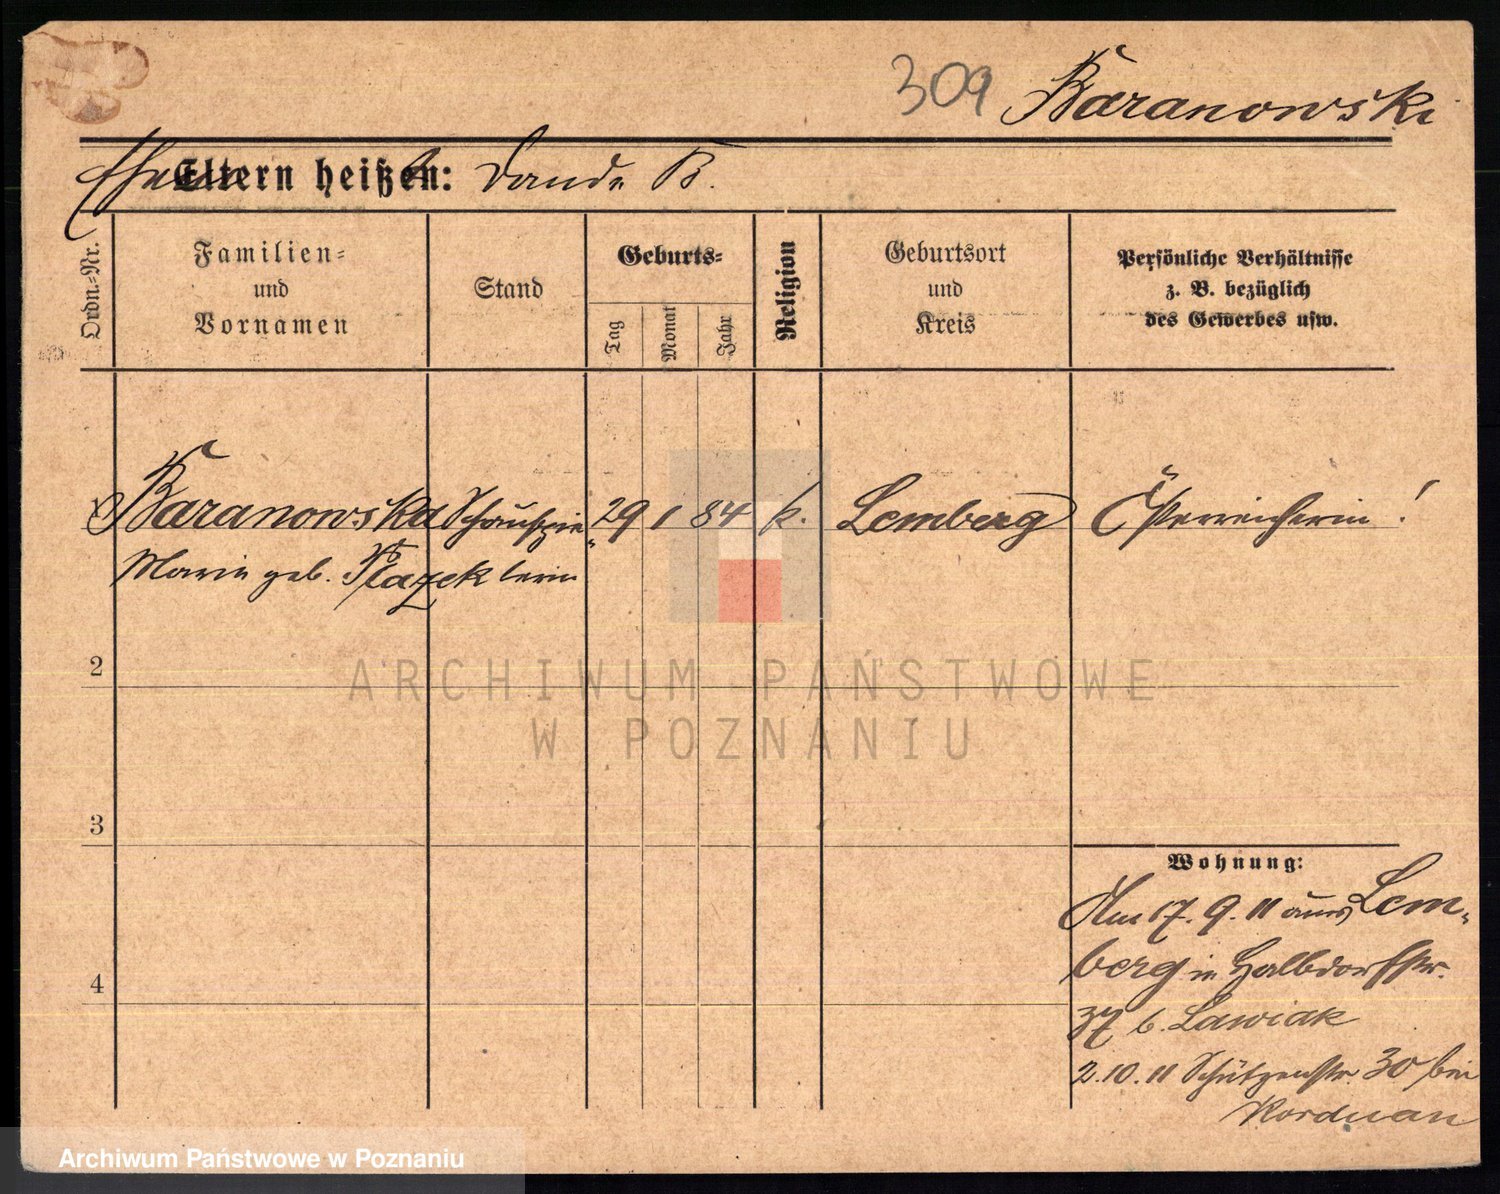 309 Baranowski
Eltern heißen: B.
Ordn.-Nr.
Familien-
und
Vornamen
Stand
Geburts-
Tag
Monat
Jahr
Religion
Geburtsort
und
Kreis
Persönliche Verhältnisse
z. B. bezüglich
des Gewerbes usw.
1 Baranowska Schauspie- 29 1 84 k. Lemberg Österreicherin!
Marie geb. lerin
2
ARCHIWUM PAŃSTWOWE
W POZNANIU
3
Wohnung:
Am 17. 9. 11 aus Lem-
berg in Halbdorfstr.
37 b. Lawiak
4
2.10.11 Schützenstr. 30 bei
Korduan
Archiwum Państwowe w Poznaniu